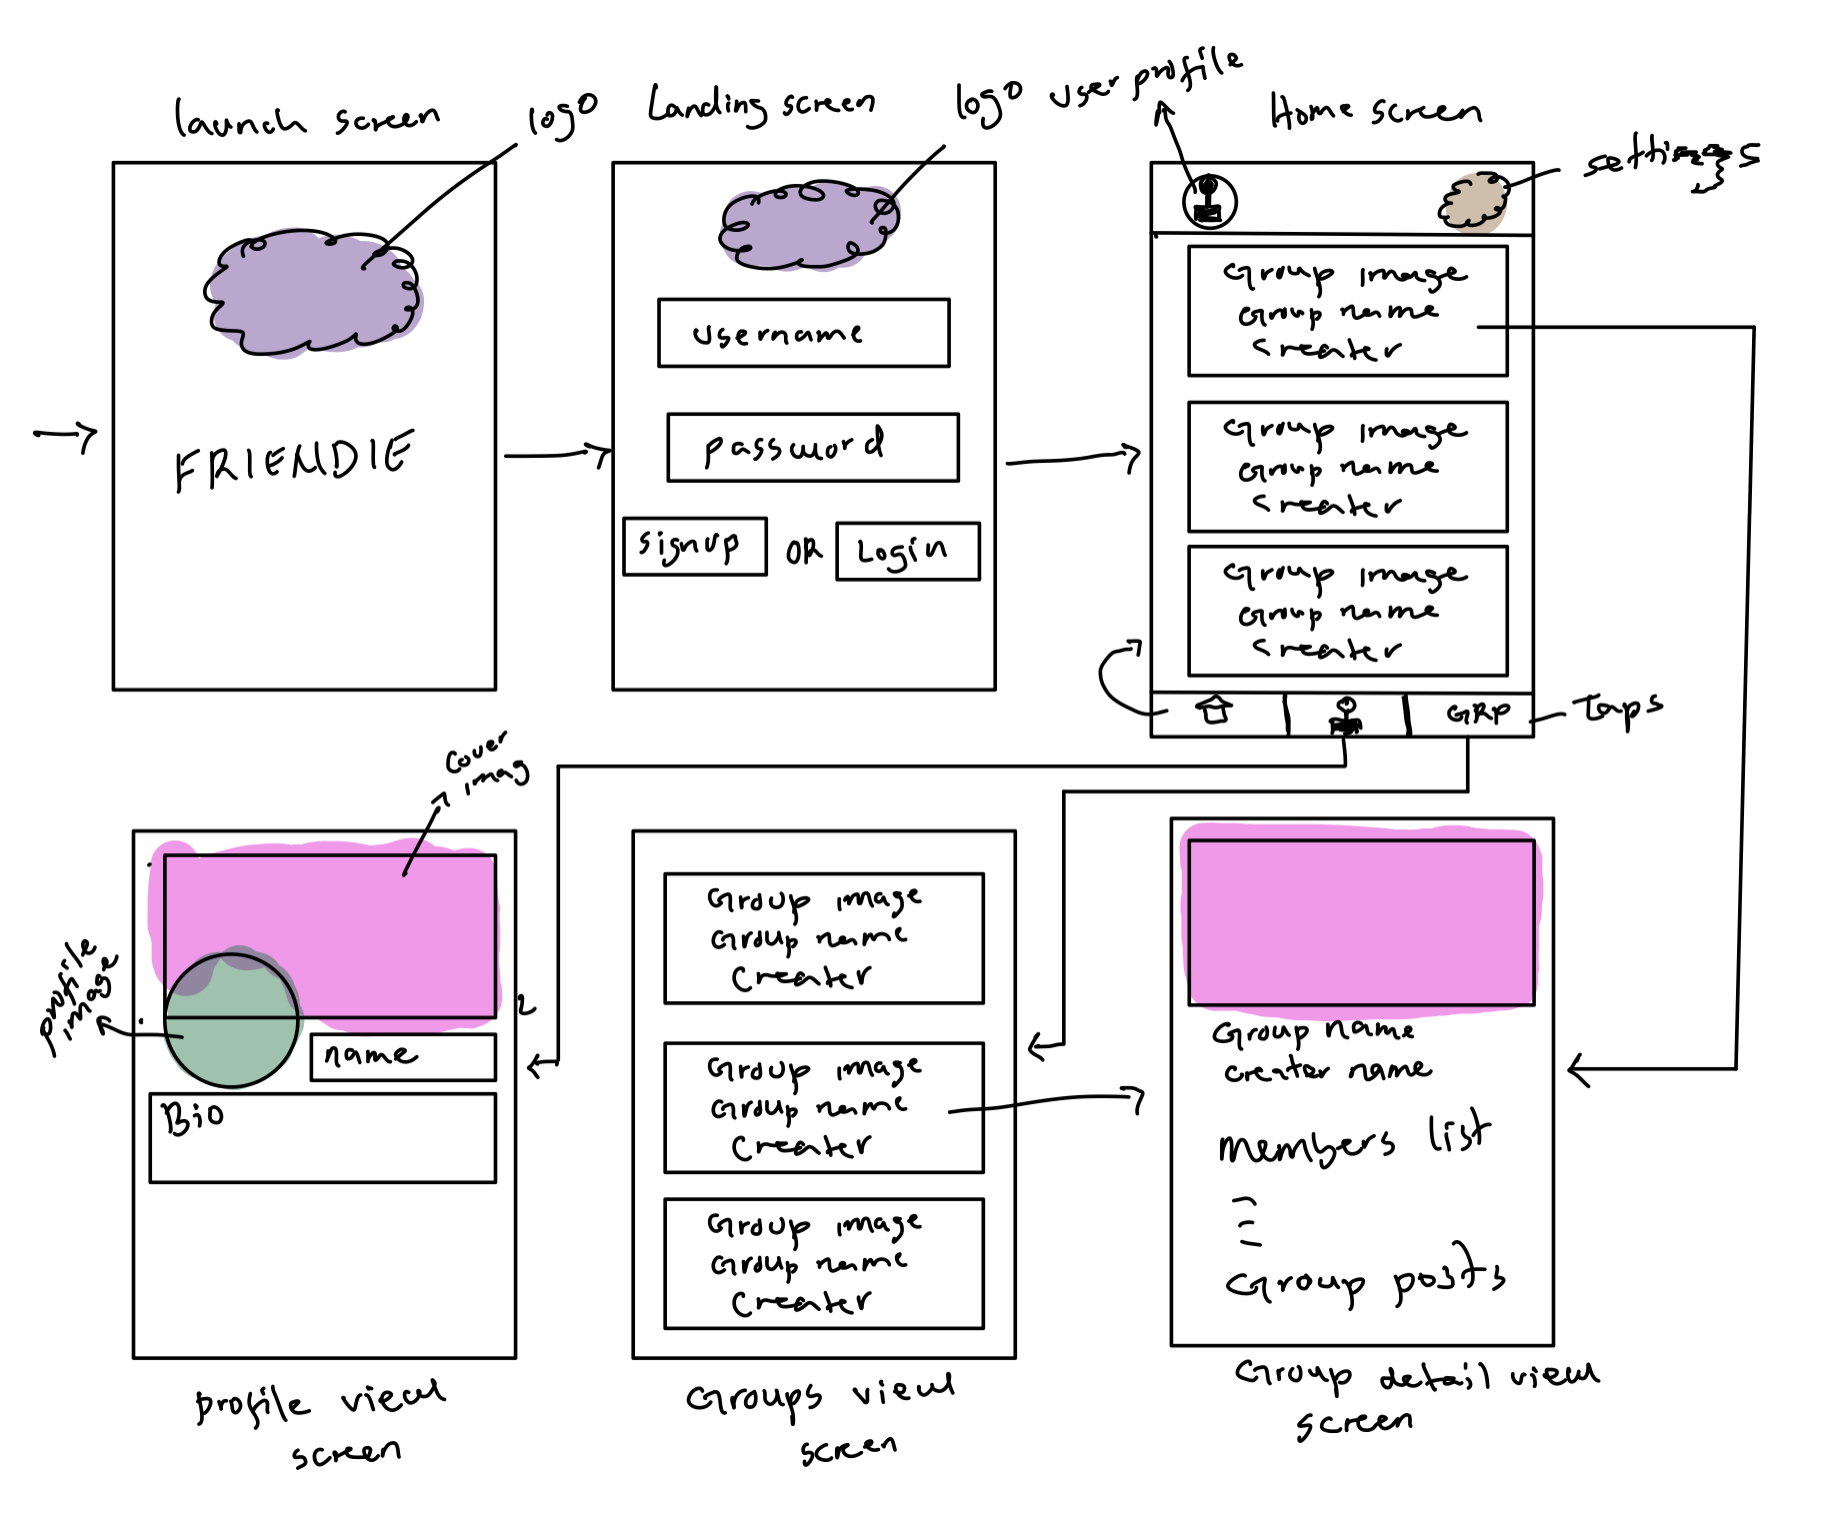 launch screen
logo
Landing screen
logo
user profile
Home screen
settings
FRIENDIE
username
password
signup
OR
Login
Group image
Group name
Creater
Group image
Group name
Creater
Group image
Group name
Creater
GRP
Taps
Cover
imag
profile
image
name
Bio
profile view
screen
Group image
Group name
Creater
Group image
Group name
Creater
Group image
Group name
Creater
Groups view
screen
Group name
creater name
members list
Group posts
Group detail view
screen